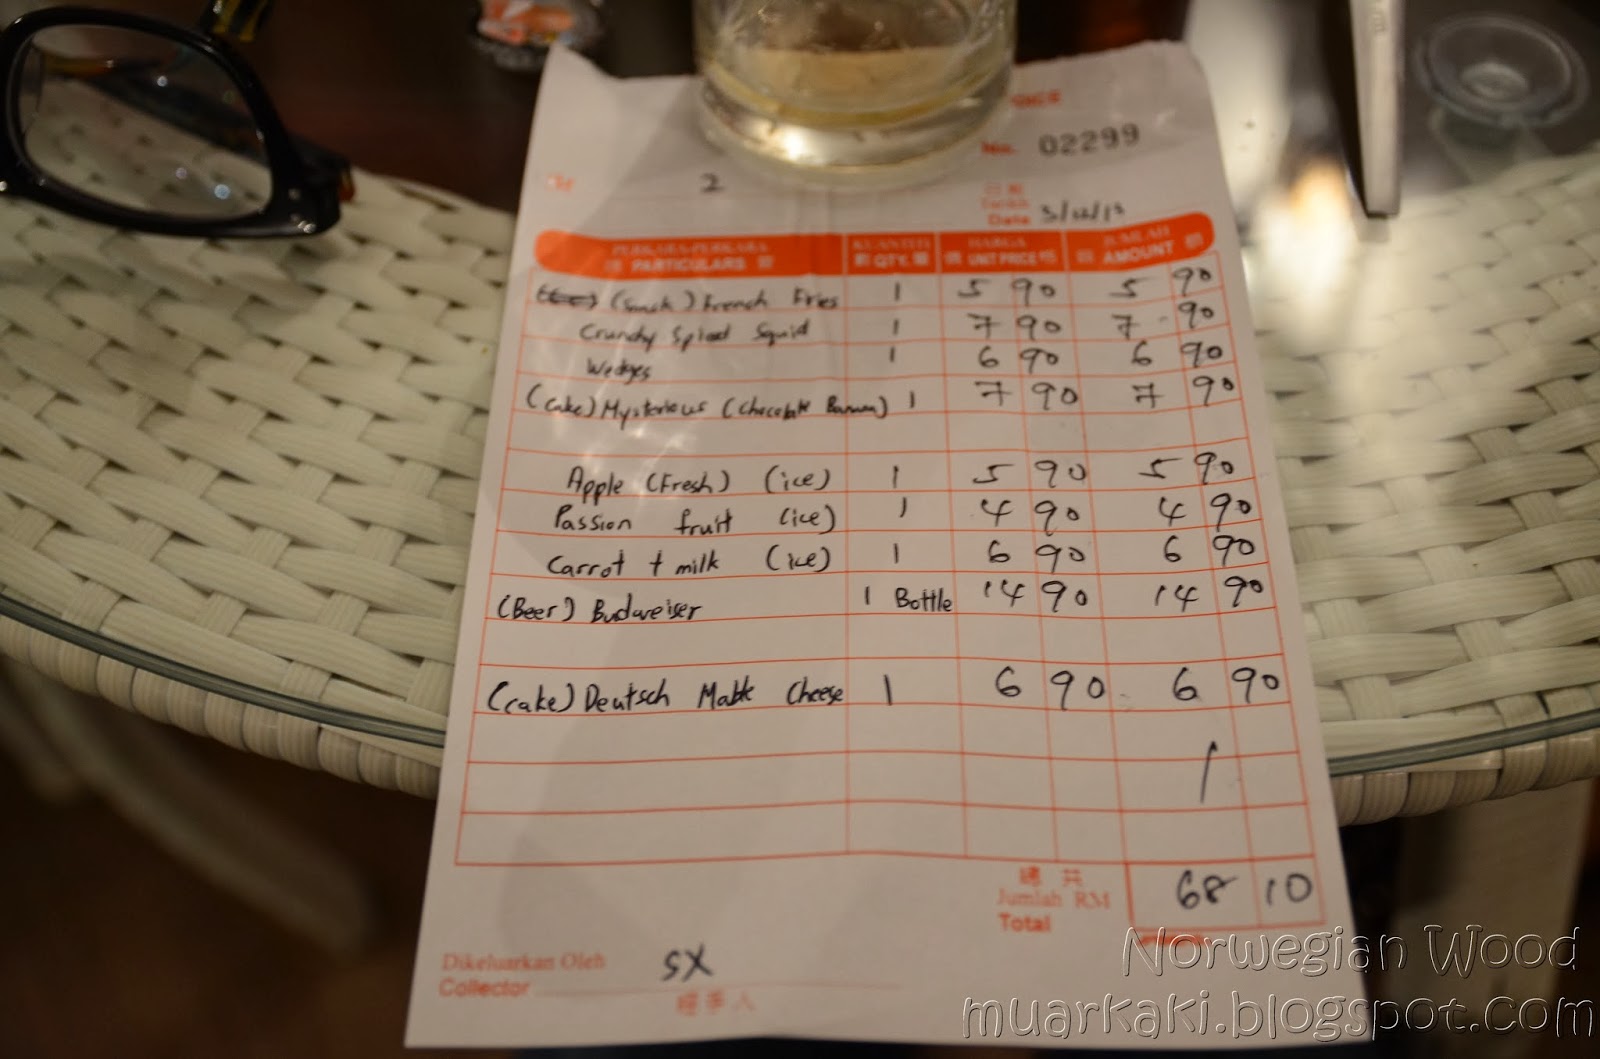 No. 02299
2
Date 3/12/13
PERKARA-PERKARA KUANTITI HARGA JUMLAH
PARTICULARS QTY. UNIT PRICE AMOUNT
(Snack) French Fries 1 5 90 5 90
Crunchy Spiced Squid 1 7 90 7 90
Wedges 1 6 90 6 90
(Cake) Mysterious (Chocolate Banana) 1 7 90 7 90
Apple (Fresh) (ice) 1 5 90 5 90
Passion fruit (ice) 1 4 90 4 90
Carrot + milk (ice) 1 6 90 6 90
(Beer) Budweiser 1 Bottle 14 90 14 90
(cake) Deutsch Mable Cheese 1 6 90 6 90
總共
Jumlah RM 68 10
Total
Dikeluarkan Oleh
Collector SX
經手人
Norwegian Wood
muarkaki.blogspot.com